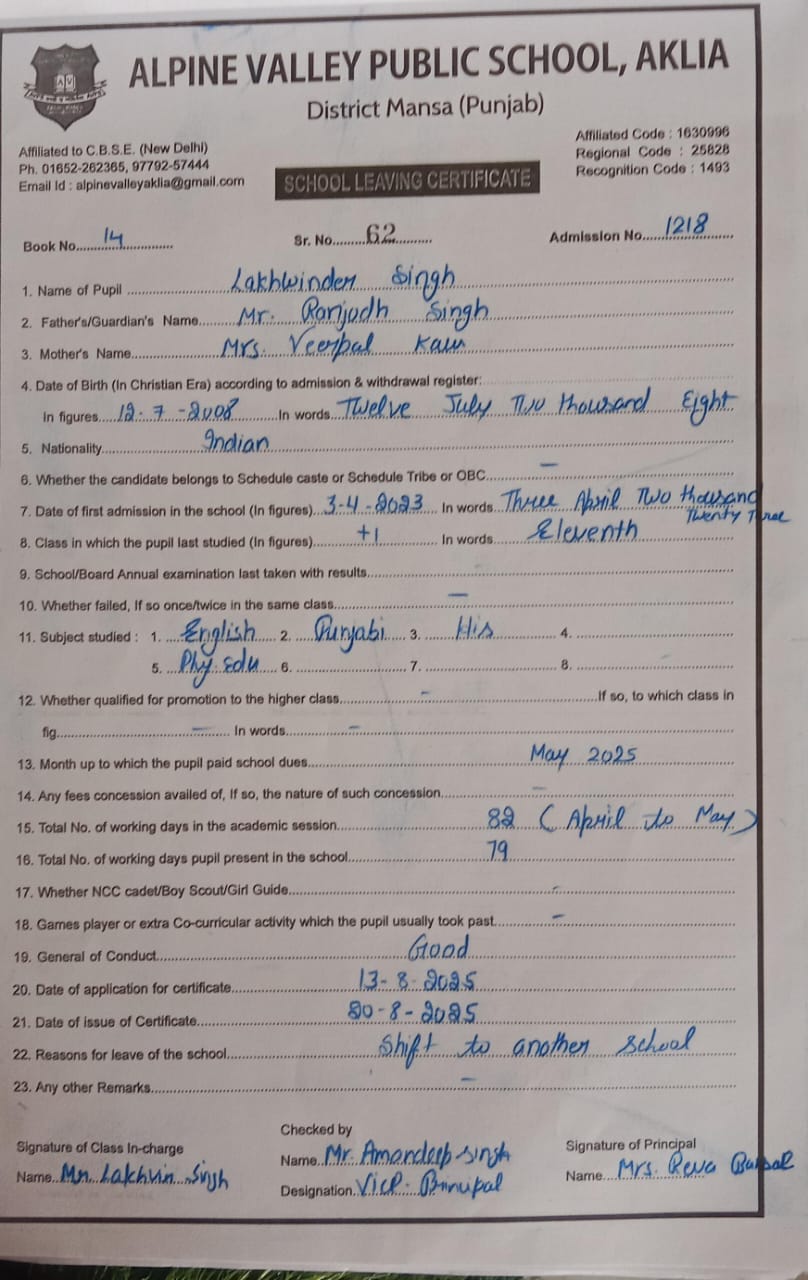 ALPINE VALLEY PUBLIC SCHOOL, AKLIA
District Mansa (Punjab)
Affiliated to C.B.S.E. (New Delhi)
Ph. 01652-262365, 97792-57444
Email Id : alpinevalleyaklia@gmail.com
Affiliated Code : 1630996
Regional Code : 25828
Recognition Code : 1493
SCHOOL LEAVING CERTIFICATE
Book No. 14 Sr. No. 62 Admission No. 1218
1. Name of Pupil Lakhwinder Singh
2. Father's/Guardian's Name Mr. Ranjodh Singh
3. Mother's Name Mrs. Veerpal Kaur
4. Date of Birth (In Christian Era) according to admission & withdrawal register:
In figures 12-7-2008 In words Twelve July Two thousand Eight
5. Nationality Indian
6. Whether the candidate belongs to Schedule caste or Schedule Tribe or OBC –
7. Date of first admission in the school (In figures) 3-4-2023 In words Three April Two thousand
Twenty Three
8. Class in which the pupil last studied (In figures) +1 In words Eleventh
9. School/Board Annual examination last taken with results
10. Whether failed, If so once/twice in the same class –
11. Subject studied : 1. English 2. Punjabi 3. His 4.
5. Phy. Edu 6. 7. 8.
12. Whether qualified for promotion to the higher class – If so, to which class in
fig. – In words –
13. Month up to which the pupil paid school dues May 2025
14. Any fees concession availed of, If so, the nature of such concession –
15. Total No. of working days in the academic session 82 (April to May)
16. Total No. of working days pupil present in the school 79
17. Whether NCC cadet/Boy Scout/Girl Guide –
18. Games player or extra Co-curricular activity which the pupil usually took past –
19. General of Conduct Good
20. Date of application for certificate 13-8-2025
21. Date of issue of Certificate 20-8-2025
22. Reasons for leave of the school Shift to another school
23. Any other Remarks –
Checked by
Signature of Class In-charge
Signature of Principal
Name Mr. Amandeep Singh
Name Singh
Name Mrs.
Designation Vice Principal